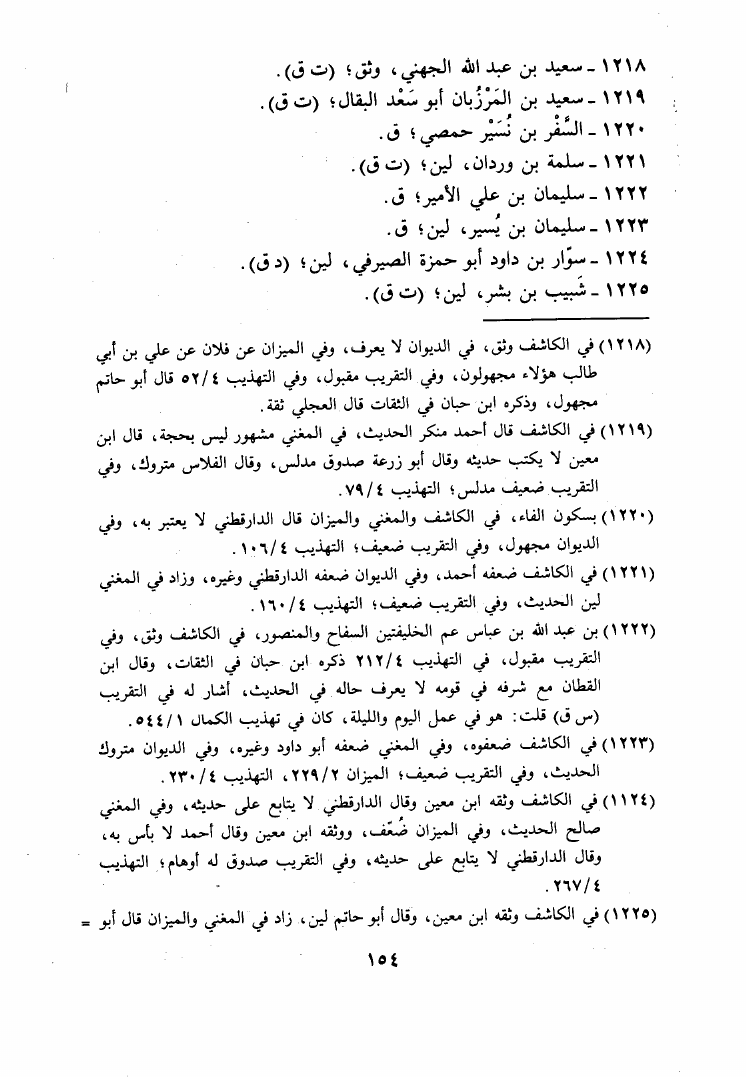 ١٢١٨ - سعيد بن عبد الله الجهني، وثق؛ (ت ق).
١٢١٩ - سعيد بن المَرْزُبان أبو سَعْد البقال؛ (ت ق).
١٢٢٠ - السَّفْر بن نُسَيْر حمصي؛ ق.
١٢٢١ - سلمة بن وردان، لين؛ (ت ق).
١٢٢٢ - سليمان بن علي الأمير؛ ق.
١٢٢٣ - سليمان بن يُسير، لين؛ ق.
١٢٢٤ - سوّار بن داود أبو حمزة الصيرفي، لين؛ (د ق).
١٢٢٥ - شَبيب بن بشر، لين؛ (ت ق).
(١٢١٨) في الكاشف وثق، في الديوان لا يعرف، وفي الميزان عن فلان عن علي بن أبي
طالب هؤلاء مجهولون، وفي التقريب مقبول، وفي التهذيب ٥٢/٤ قال أبو حاتم
مجهول، وذكره ابن حبان في الثقات قال العجلي ثقة.
(١٢١٩) في الكاشف قال أحمد منكر الحديث، في المغني مشهور ليس بحجة، قال ابن
معين لا يكتب حديثه وقال أبو زرعة صدوق مدلس، وقال الفلاس متروك، وفي
التقريب ضعيف مدلس؛ التهذيب ٧٩/٤.
(١٢٢٠) بسكون الفاء، في الكاشف والمغني والميزان قال الدارقطني لا يعتبر به، وفي
الديوان مجهول، وفي التقريب ضعيف؛ التهذيب ١٠٦/٤.
(١٢٢١) في الكاشف ضعفه أحمد، وفي الديوان ضعفه الدارقطني وغيره، وزاد في المغني
لين الحديث، وفي التقريب ضعيف؛ التهذيب ١٦٠/٤.
(١٢٢٢) بن عبد الله بن عباس عم الخليفتين السفاح والمنصور، في الكاشف وثق، وفي
التقريب مقبول، في التهذيب ٢١٢/٤ ذكره ابن حبان في الثقات، وقال ابن
القطان مع شرفه في قومه لا يعرف حاله في الحديث، أشار له في التقريب
(س ق) قلت: هو في عمل اليوم والليلة، كان في تهذيب الكمال ٥٤٤/١.
(١٢٢٣) في الكاشف ضعفوه، وفي المغني ضعفه أبو داود وغيره، وفي الديوان متروك
الحديث، وفي التقريب ضعيف؛ الميزان ٢٢٩/٢، التهذيب ٢٣٠/٤.
(١١٢٤) في الكاشف وثقه ابن معين وقال الدارقطني لا يتابع على حديثه، وفي المغني
صالح الحديث، وفي الميزان ضُعّف، ووثقه ابن معين وقال أحمد لا بأس به،
وقال الدارقطني لا يتابع على حديثه، وفي التقريب صدوق له أوهام؛ التهذيب
٢٦٧/٤.
(١٢٢٥) في الكاشف وثقه ابن معين، وقال أبو حاتم لين، زاد في المغني والميزان قال أبو =
١٥٤